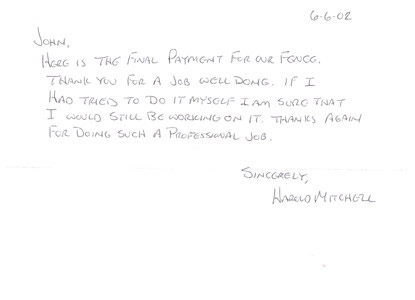 6-6-02
JOHN,
HERE IS THE FINAL PAYMENT FOR OUR FENCE.
THANK YOU FOR A JOB WELL DONE. IF I
HAD TRIED TO DO IT MYSELF I AM SURE THAT
I WOULD STILL BE WORKING ON IT. THANKS AGAIN
FOR DOING SUCH A PROFESSIONAL JOB.
SINCERELY,
HAROLD MITCHELL